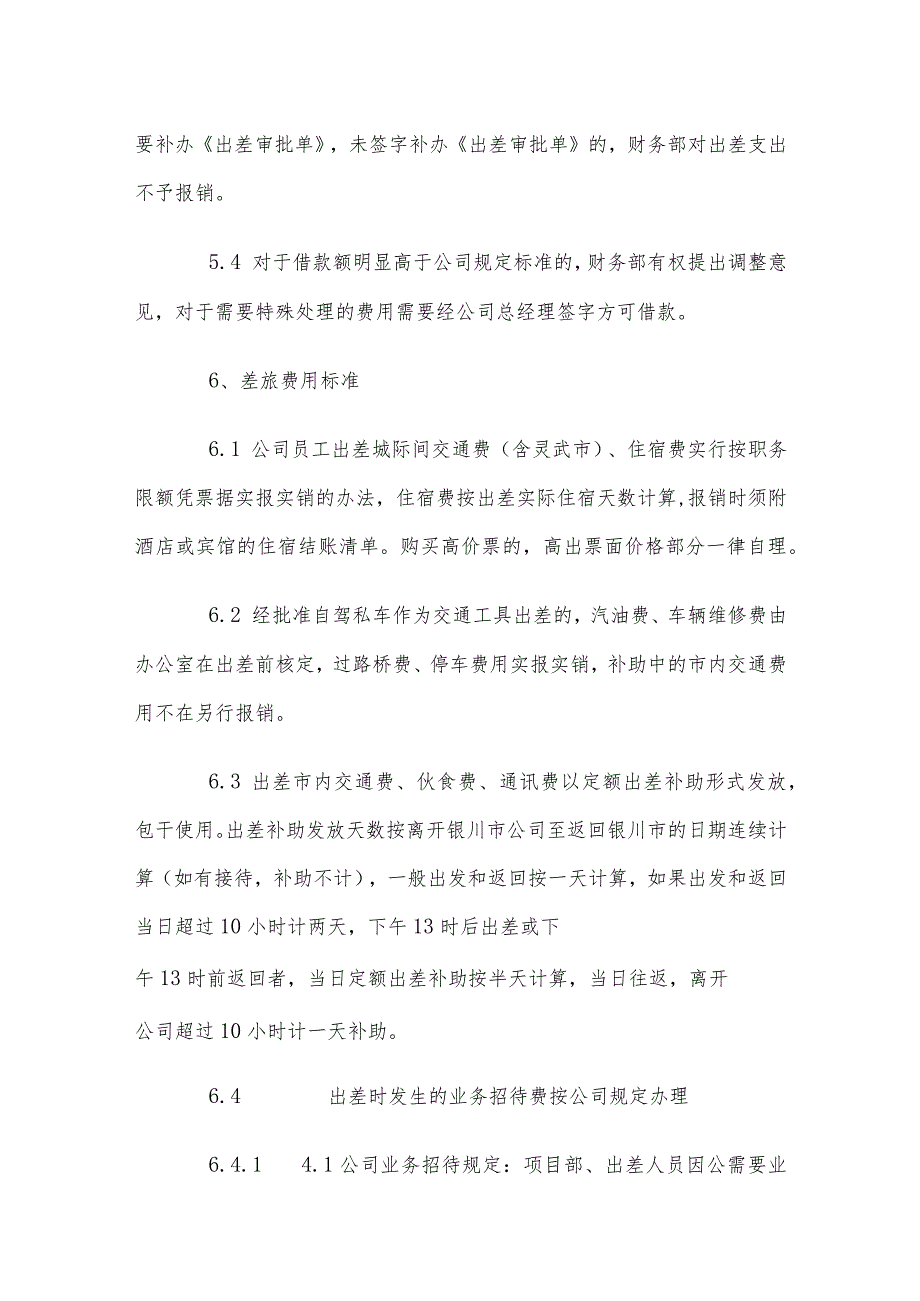 要补办《出差审批单》，未签字补办《出差审批单》的，财务部对出差支出
不予报销。
5.4 对于借款额明显高于公司规定标准的，财务部有权提出调整意
见，对于需要特殊处理的费用需要经公司总经理签字方可借款。
6、差旅费用标准
6.1 公司员工出差城际间交通费（含灵武市）、住宿费实行按职务
限额凭票据实报实销的办法，住宿费按出差实际住宿天数计算,报销时须附
酒店或宾馆的住宿结账清单。购买高价票的，高出票面价格部分一律自理。
6.2 经批准自驾私车作为交通工具出差的，汽油费、车辆维修费由
办公室在出差前核定，过路桥费、停车费用实报实销，补助中的市内交通费
用不在另行报销。
6.3 出差市内交通费、伙食费、通讯费以定额出差补助形式发放，
包干使用。出差补助发放天数按离开银川市公司至返回银川市的日期连续计
算（如有接待，补助不计），一般出发和返回按一天计算，如果出发和返回
当日超过 10 小时计两天，下午 13 时后出差或下
午 13 时前返回者，当日定额出差补助按半天计算，当日往返，离开
公司超过 10 小时计一天补助。
6.4 出差时发生的业务招待费按公司规定办理
6.4.1 4.1 公司业务招待规定：项目部、出差人员因公需要业